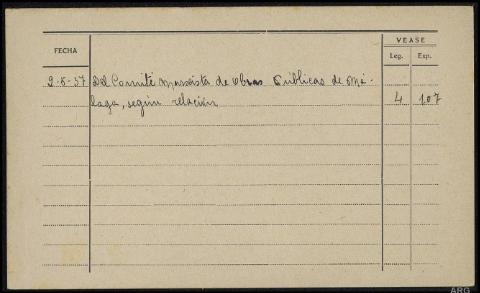 VEASE
FECHA
Leg. Exp.
2-6-37 Del Comité marxista de Obras Públicas de Má-
laga, según relación 4 107
ARG